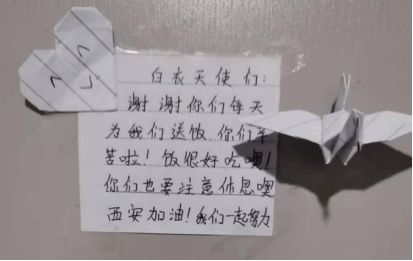 白衣天使们:
谢谢你们每天
为我们送饭 你们辛
苦啦!饭很好吃噢!
你们也要注意休息噢
西安加油!我们一起努力